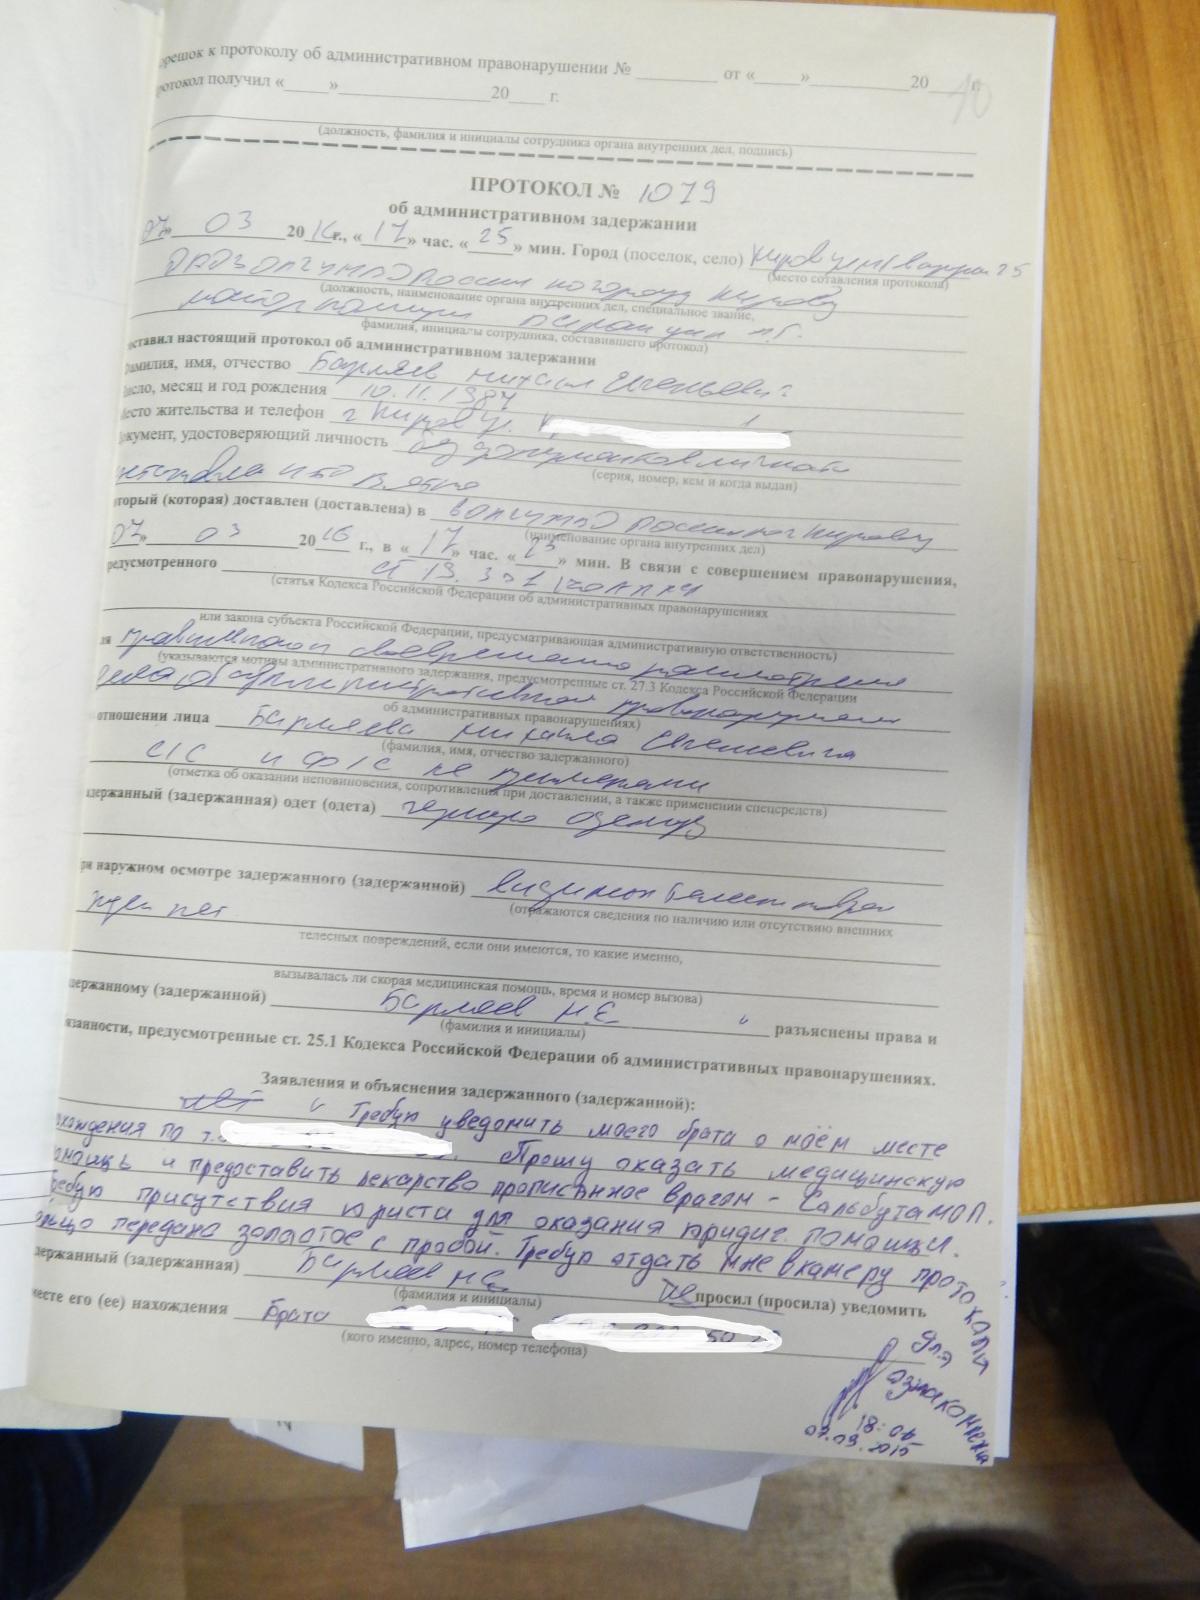 орешок к протоколу об административном правонарушении № от « » 20 г. 10
ротокол получил « » 20 г.
(должность, фамилия и инициалы сотрудника органа внутренних дел, подпись)
ПРОТОКОЛ № 1079
об административном задержании
07» 03 2016 г., «17» час. «25» мин. Город (поселок, село) Киров
(место сотавления протокола)
России по городу Кирову
(должность, наименование органа внутренних дел, специальное звание,
майор полиции
фамилия, инициалы сотрудника, составившего протокол)
оставил настоящий протокол об административном задержании
амилия, имя, отчество Михаил Евгеньевич
исло, месяц и год рождения 10.11.1987
место жительства и телефон г Киров ул.
документ, удостоверяющий личность без документов личность
(серия, номер, кем и когда выдан)
установлена
оторый (которая) доставлен (доставлена) в России по г Кирову
(наименование органа внутренних дел)
07» 03 2016 г., в «17» час. «23» мин. В связи с совершением правонарушения,
редусмотренного ст 19.3 ч 1 КоАП РФ
(статья Кодекса Российской Федерации об административных правонарушениях
или закона субъекта Российской Федерации, предусматривающая административную ответственность)
ля правильного и своевременного рассмотрения
(указываются мотивы административного задержания, предусмотренные ст. 27.3 Кодекса Российской Федерации
дела об административном правонарушении
об административных правонарушениях)
отношении лица Михаила Евгеньевича
(фамилия, имя, отчество задержанного)
С/С и Ф/С не применяли
(отметка об оказании неповиновения, сопротивления при доставлении, а также применении спецсредств)
адержанный (задержанная) одет (одета) черную одежду
ри наружном осмотре задержанного (задержанной) видимых телесных повре
(отражаются сведения по наличию или отсутствию внешних
ждений нет
телесных повреждений, если они имеются, то какие именно,
вызывалась ли скорая медицинская помощь, время и номер вызова)
адержанному (задержанной) М.Е. разъяснены права и
(фамилия и инициалы)
язанности, предусмотренные ст. 25.1 Кодекса Российской Федерации об административных правонарушениях.
Заявления и объяснения задержанного (задержанной):
нет Требую уведомить моего брата о моём месте
нахождения по т. Прошу оказать медицинскую
помощь и предоставить лекарство прописанное врачом - Сальбутамол.
Требую присутствия юриста для оказания юридич. помощи.
кольцо передано золотое с пробой. Требую отдать мне в камеру протоколы
для
ознакомления
держанный (задержанная) М.Е. просил (просила) уведомить
(фамилия и инициалы)
месте его (ее) нахождения брата
(кого именно, адрес, номер телефона)
18:06
07.03.2016